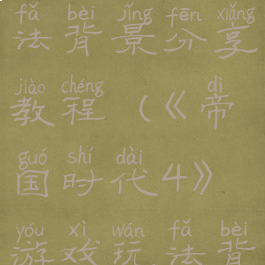 fǎ bèi jǐng fēn xiǎng
法背景分享
jiào chéng dì
教程（《帝
guó shí dài
国时代4》
yóu xì wán fǎ bèi
游戏玩法背